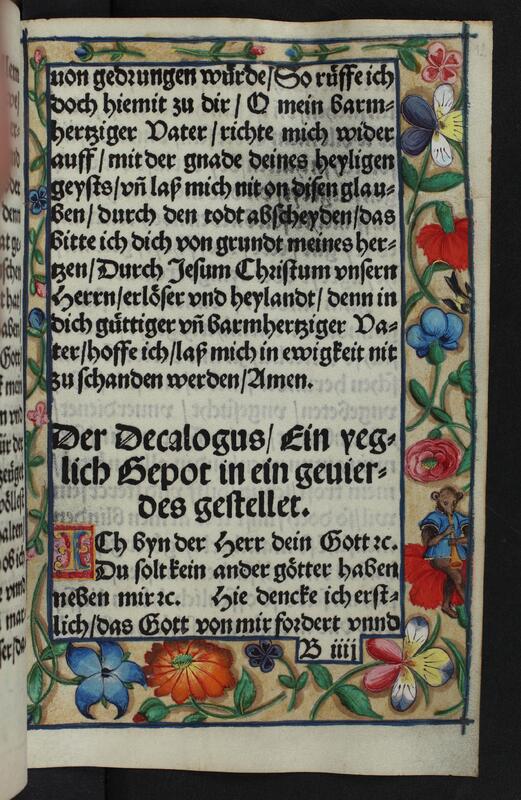 von gedrungen würde/So rüffe ich
doch hiemit zu dir/ O mein barm-
hertziger Vater/richte mich wider
auff/mit der gnade deines heyligen
geysts/vñ laß mich nit on disen glau-
ben/ durch den todt abscheyden/das
bitte ich dich von grundt meines her-
tzen/Durch Jesum Christum vnsern
Herrn/erlöser vnd heylandt/ denn in
dich güttiger vñ barmhertziger Va-
ter/hoffe ich/laß mich in ewigkeit nit
zu schanden werden/Amen.
Der Decalogus/ Ein yeg-
lich Gepot in ein gevier-
des gestellet.
ICh byn der Herr dein Gott ꝛc.
Du solt kein ander götter haben
neben mir ꝛc. Hie dencke ich erst-
lich/das Gott von mir fordert vnnd
B iiij
12